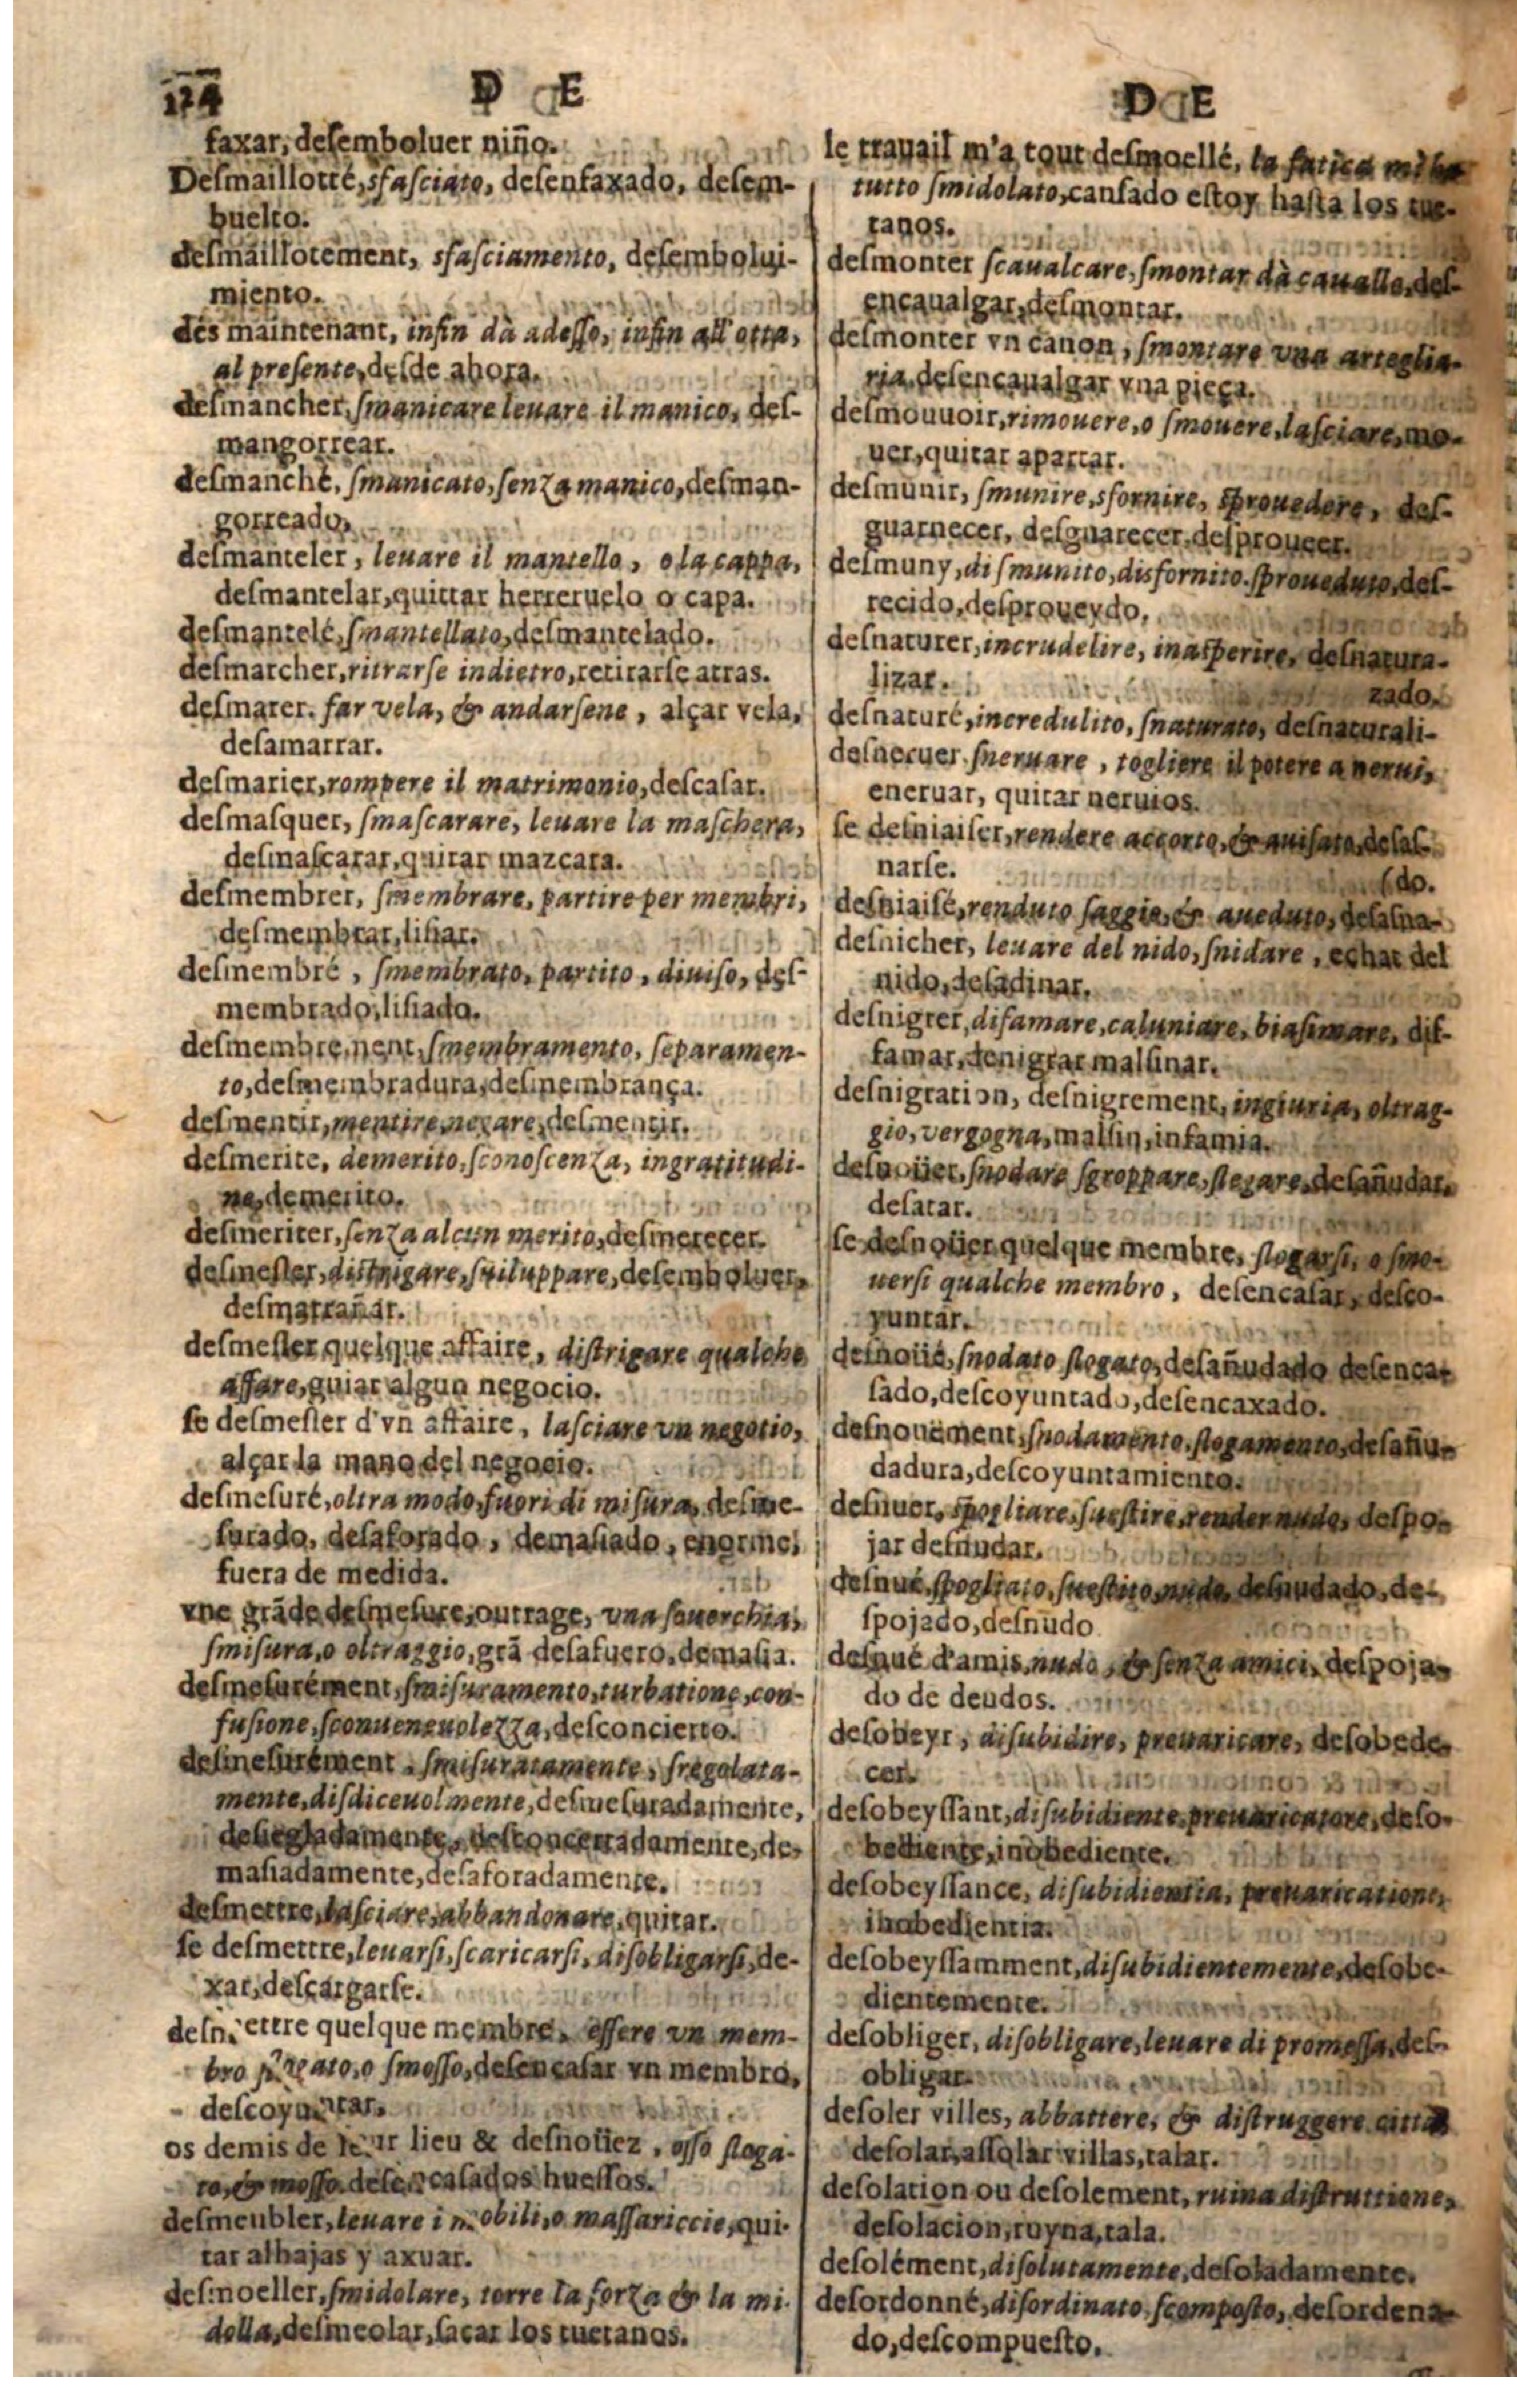 124
D E
faxar, desemboluer niño.
Desmaillotté, sfasciato, desenfaxado, desem-
buelto.
desmaillotement, sfasciamento, desembolui-
miento.
dés maintenant, infin dà adesso, infin all'otta,
al presente, desde ahora.
desmancher, smanicare leuare il manico, des-
mangorrear.
desmanché, smanicato, senza manico, desman-
gorreado,
desmanteler, leuare il mantello, o la cappa,
desmantelar, quittar herreruelo o capa.
desmantelé, smantellato, desmantelado.
desmarcher, ritrarse indietro, retirarse atras.
desmarer. far vela, & andarsene, alçar vela,
desamarrar.
desmarier, rompere il matrimonio, descasar.
desmasquer, smascarare, leuare la maschera,
desmascarar, quitar mazcara.
desmembrer, smembrare, partire per membri,
desmembrar, lisiar.
desmembré, smembrato, partito, diuiso, des-
membrado, lisiado.
desmembrement, smembramento, separamen-
to, desmembradura, desmembrança.
desmentir, mentire, negare, desmentir.
desmerite, demerito, sconoscenza, ingratitudi-
ne, demerito.
desmeriter, senza alcun merito, desmerecer.
desmesler, distrigare, suiluppare, desemboluer,
desmarrañar.
desmesler quelque affaire, distrigare qualche
affare, guiar algun negocio.
se desmesler d'vn affaire, lasciare vn negotio,
alçar la mano del negocio.
desmesuré, oltra modo, fuori di misura, desme-
surado, desaforado, demasiado, enorme,
fuera de medida.
vne grãde desmesure, outrage, vna souerchia,
smisura, o oltraggio, grã desafuero, demasia.
desmesurément, smisuramento, turbatione, con-
fusione, sconueneuolezza, desconcierto.
desmesurément, smisuratamente, sregolata-
mente, disdiceuolmente, desmesuradamente,
desregladamente, desconcertadamente, de-
masiadamente, desaforadamente.
desmettre, lasciare, abbandonare, quitar.
se desmettre, leuarsi, scaricarsi, disobligarsi, de-
xar, descargarse.
desmettre quelque membre, essere vn mem-
bro slogato, o smosso, desencasar vn membro,
descoyuntar.
os demis de leur lieu & desnoüez, osso sloga-
to, & mosso. desencasados huessos.
desmeubler, leuare i mobili, o massariccie, qui-
tar alhajas y axuar.
desmoeller, smidolare, torre la forza & la mi-
dolla, desmeolar, sacar los tuetanos.
D E
le trauail m'a tout desmoellé, la fatica mi ha
tutto smidolato, cansado estoy hasta los tue-
tanos.
desmonter scaualcare, smontar dà cauallo, des-
encaualgar, desmontar.
desmonter vn canon, smontare vna arteglia-
ria, desencaualgar vna pieça.
desmouuoir, rimouere, o smouere, lasciare, mo-
uer, quitar apartar.
desmunir, smunire, sfornire, sprouedere, des-
guarnecer, desguarecer, desproueer.
desmuny, dismunito, disfornito. sproueduto, des-
recido, desproueydo,
desnaturer, incrudelire, inasperire, desnatura-
lizar.
zado.
desnaturé, incredulito, snaturato, desnaturali-
desneruer. sneruare, togliere il potere a nerui,
eneruar, quitar neruios.
se desniaiser, rendere accorto, & auisato, desas-
narse.
(do.
desniaisé, renduto saggio, & aueduto, desasna-
desnicher, leuare del nido, snidare, echar del
nido, desadinar.
desnigrer, difamare, caluniare, biasimare, dif-
famar, denigrar malsinar.
desnigration, desnigrement, ingiuria, oltrag-
gio, vergogna, malsin, infamia.
desnoüer, snodare sgroppare, slegare, desañudar,
desatar.
se desnoüer quelque membre, slogarsi, o smo-
uersi qualche membro, desencasar, desco-
yuntar.
desnoüé, snodato slogato, desañudado desenca-
sado, descoyuntado, desencaxado.
desnouëment, snodamento, slogamento, desañu-
dadura, descoyuntamiento.
desnuer, spogliare, suestire, render nudo, despo-
jar desnudar.
desnué, spogliato, suestito, nudo, desnudado, de-
spojado, desnudo
desnué d'amis, nudo, & senza amici, despoja-
do de deudos.
desobeyr, disubidire, preuaricare, desobede-
cer.
desobeyssant, disubidiente, preuaricatore, deso-
bediente, inobediente.
desobeyssance, disubidientia, preuaricatione,
inobedientia.
desobeyssamment, disubidientemente, desobe-
dientemente.
desobliger, disobligare, leuare di promessa, des-
obligar.
desoler villes, abbattere, & distruggere città
desolar, assolar villas, talar.
desolation ou desolement, ruina distruttione,
desolacion, ruyna, tala.
desolément, disolutamente, desoladamente.
desordonné, disordinato, scomposto, desordena-
do, descompuesto.